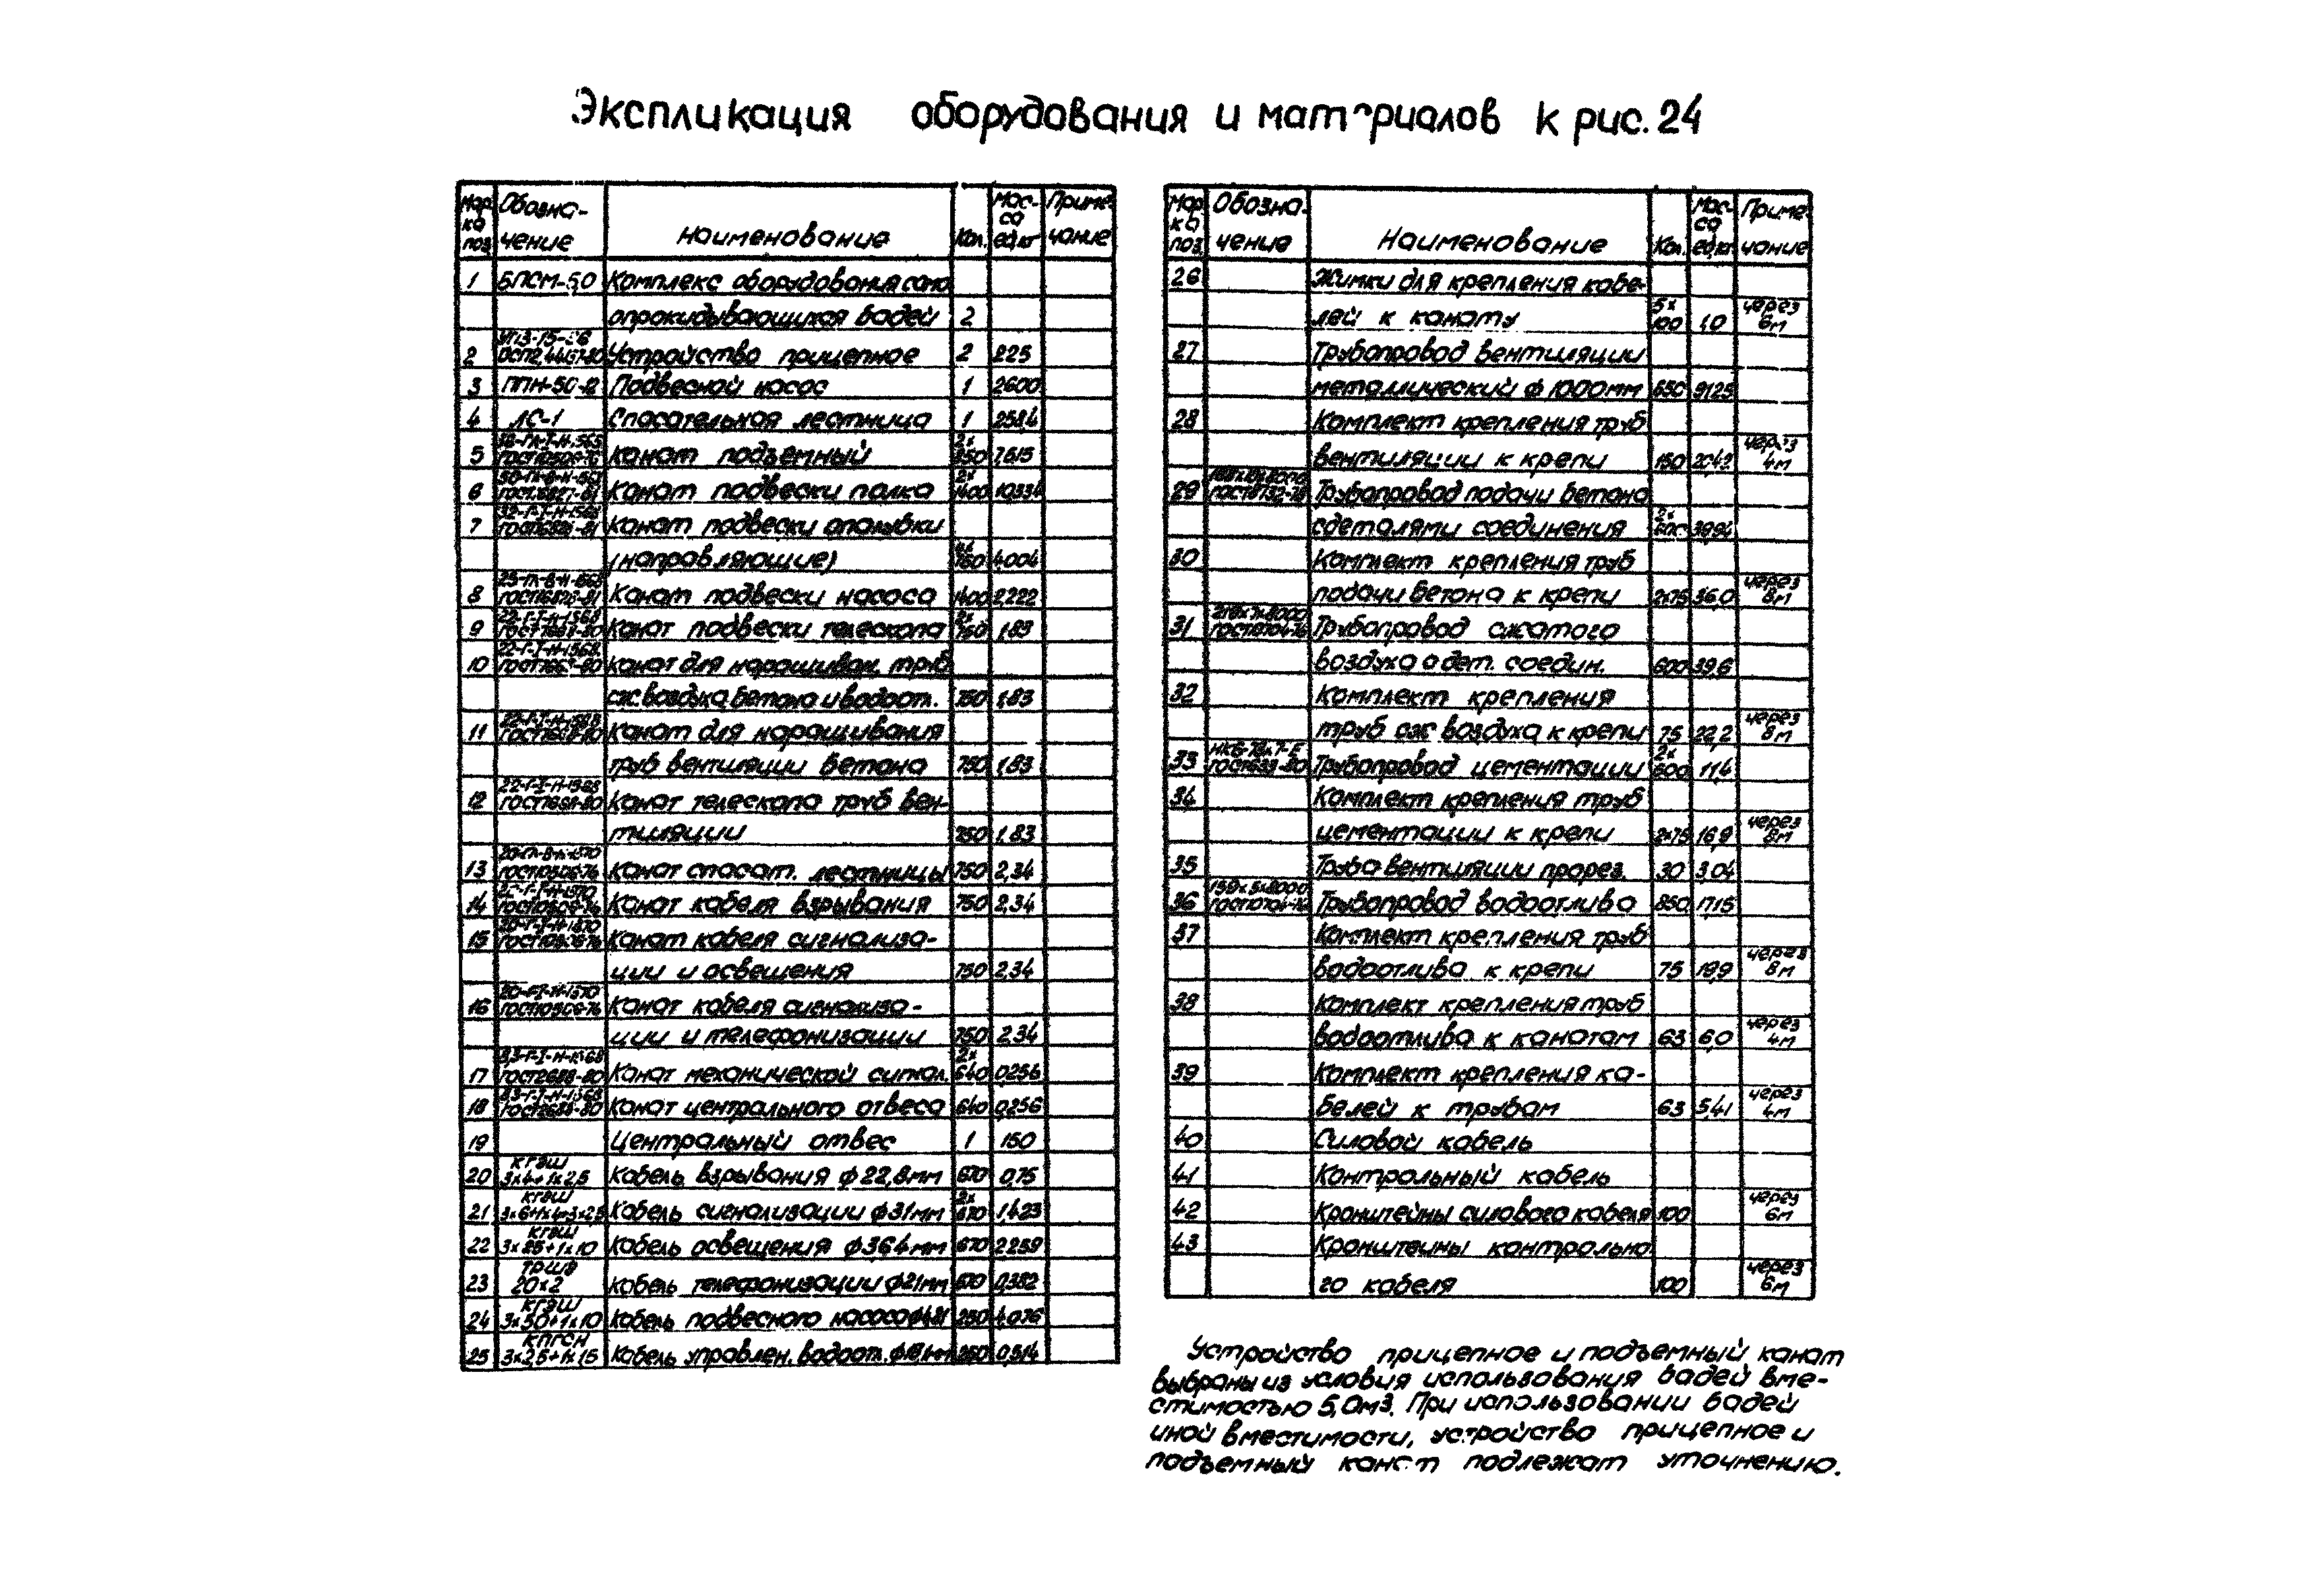 Экспликация оборудования и материалов к рис. 24
Мар- Обозна- Мас- Приме-
ка са
поз. чение Наименование Кол. ед,кг чание
1 БПСМ-5,0 Комплекс оборудования само
опрокидывающихся бадей 2
2 Устройство прицепное 2 225
3 ППН-50-12 Подвесной насос 1 2600
4 ЛС-1 Спасательная лестница 1 2584
5 Канат подъемный 2х 7,615
6 Канат подвески полка 2х 1400 10,334
7 Канат подвески опалубки
(направляющие) 750 4,004
8 Канат подвески насоса 1400 2,222
9 Канат подвески телескопа 2х 750 1,83
10 Канат для наращиван. труб
сж.воздуха,бетона и водоотл. 750 1,83
11 Канат для наращивания
труб вентиляции бетона 750 1,83
12 22-Г-I-Н-1568 ГОСТ7668-80 Канат телескопа труб вен-
тиляции 750 1,83
13 ГОСТ10506-76 Канат спасат. лестницы 750 2,34
14 ГОСТ10506-76 Канат кабеля взрывания 750 2,34
15 ГОСТ10506-76 Канат кабеля сигнализа-
ции и освещения 750 2,34
16 20-Г-I-Н-1570 ГОСТ10506-76 Канат кабеля сигнализа-
ции и телефонизации 750 2,34
17 ГОСТ2688-80 Канат механической сигнал. 2х 640 0,256
18 ГОСТ2688-80 Канат центрального отвеса 640 0,256
19 Центральный отвес 1 150
20 КГЭШ 3х4+1х2,5 Кабель взрывания ф22,8мм 670 0,75
21 КГЭШ 3х6+1х4+3х2,5 Кабель сигнализации ф31мм 2х 670 1,423
22 КГЭШ 3х25+1х10 Кабель освещения ф36,4мм 670 2,259
23 ТРШВ 20х2 Кабель телефонизации ф21мм 670 0,382
24 КГЭШ 3х50+1х10 Кабель подвесного насоса 250 4,076
25 КПГСН 3х2,5+1х1,5 Кабель управлен. водоотл. 250 0,514
Мар- Обозна- Мас- Приме-
ка са
поз. чение Наименование Кол. ед,кг чание
26 Жимки для крепления кабе-
лей к канату 5х 100 1,0 через 6м
27 Трубопровод вентиляции
металлический ф1000мм 650 91,25
28 Комплект крепления труб
вентиляции к крепи 150 20,42 через 4м
29 ГОСТ8732-78 Трубопровод подачи бетона
с деталями соединения 2х 39,94
30 Комплект крепления труб
подачи бетона к крепи 2х75 36,0 через 8м
31 219х7х8000 ГОСТ10704-76 Трубопровод сжатого
воздуха с дет. соедин. 600 39,6
32 Комплект крепления
труб сж воздуха к крепи 75 22,2 через 8м
33 Трубопровод цементации 2х 600 11,4
34 Комплект крепления труб
цементации к крепи 2х75 16,9 через 8м
35 Труба вентиляции прорез. 30 3,04
36 159х5х8000 ГОСТ10704-76 Трубопровод водоотлива 850 17,15
37 Комплект крепления труб
водоотлива к крепи 75 19,9 через 8м
38 Комплект крепления труб
водоотлива к канатам 63 6,0 через 4м
39 Комплект крепления ка-
белей к трубам 63 5,41 через 4м
40 Силовой кабель
41 Контрольный кабель
42 Кронштейны силового кабеля 100 через 6м
43 Кронштейны контрольно
го кабеля 100 через 6м
Устройство прицепное и подъемный канат
выбраны из условия использования бадей вме-
стимостью 5,0м3. При использовании бадей
иной вместимости, устройство прицепное и
подъемный канат подлежат уточнению.